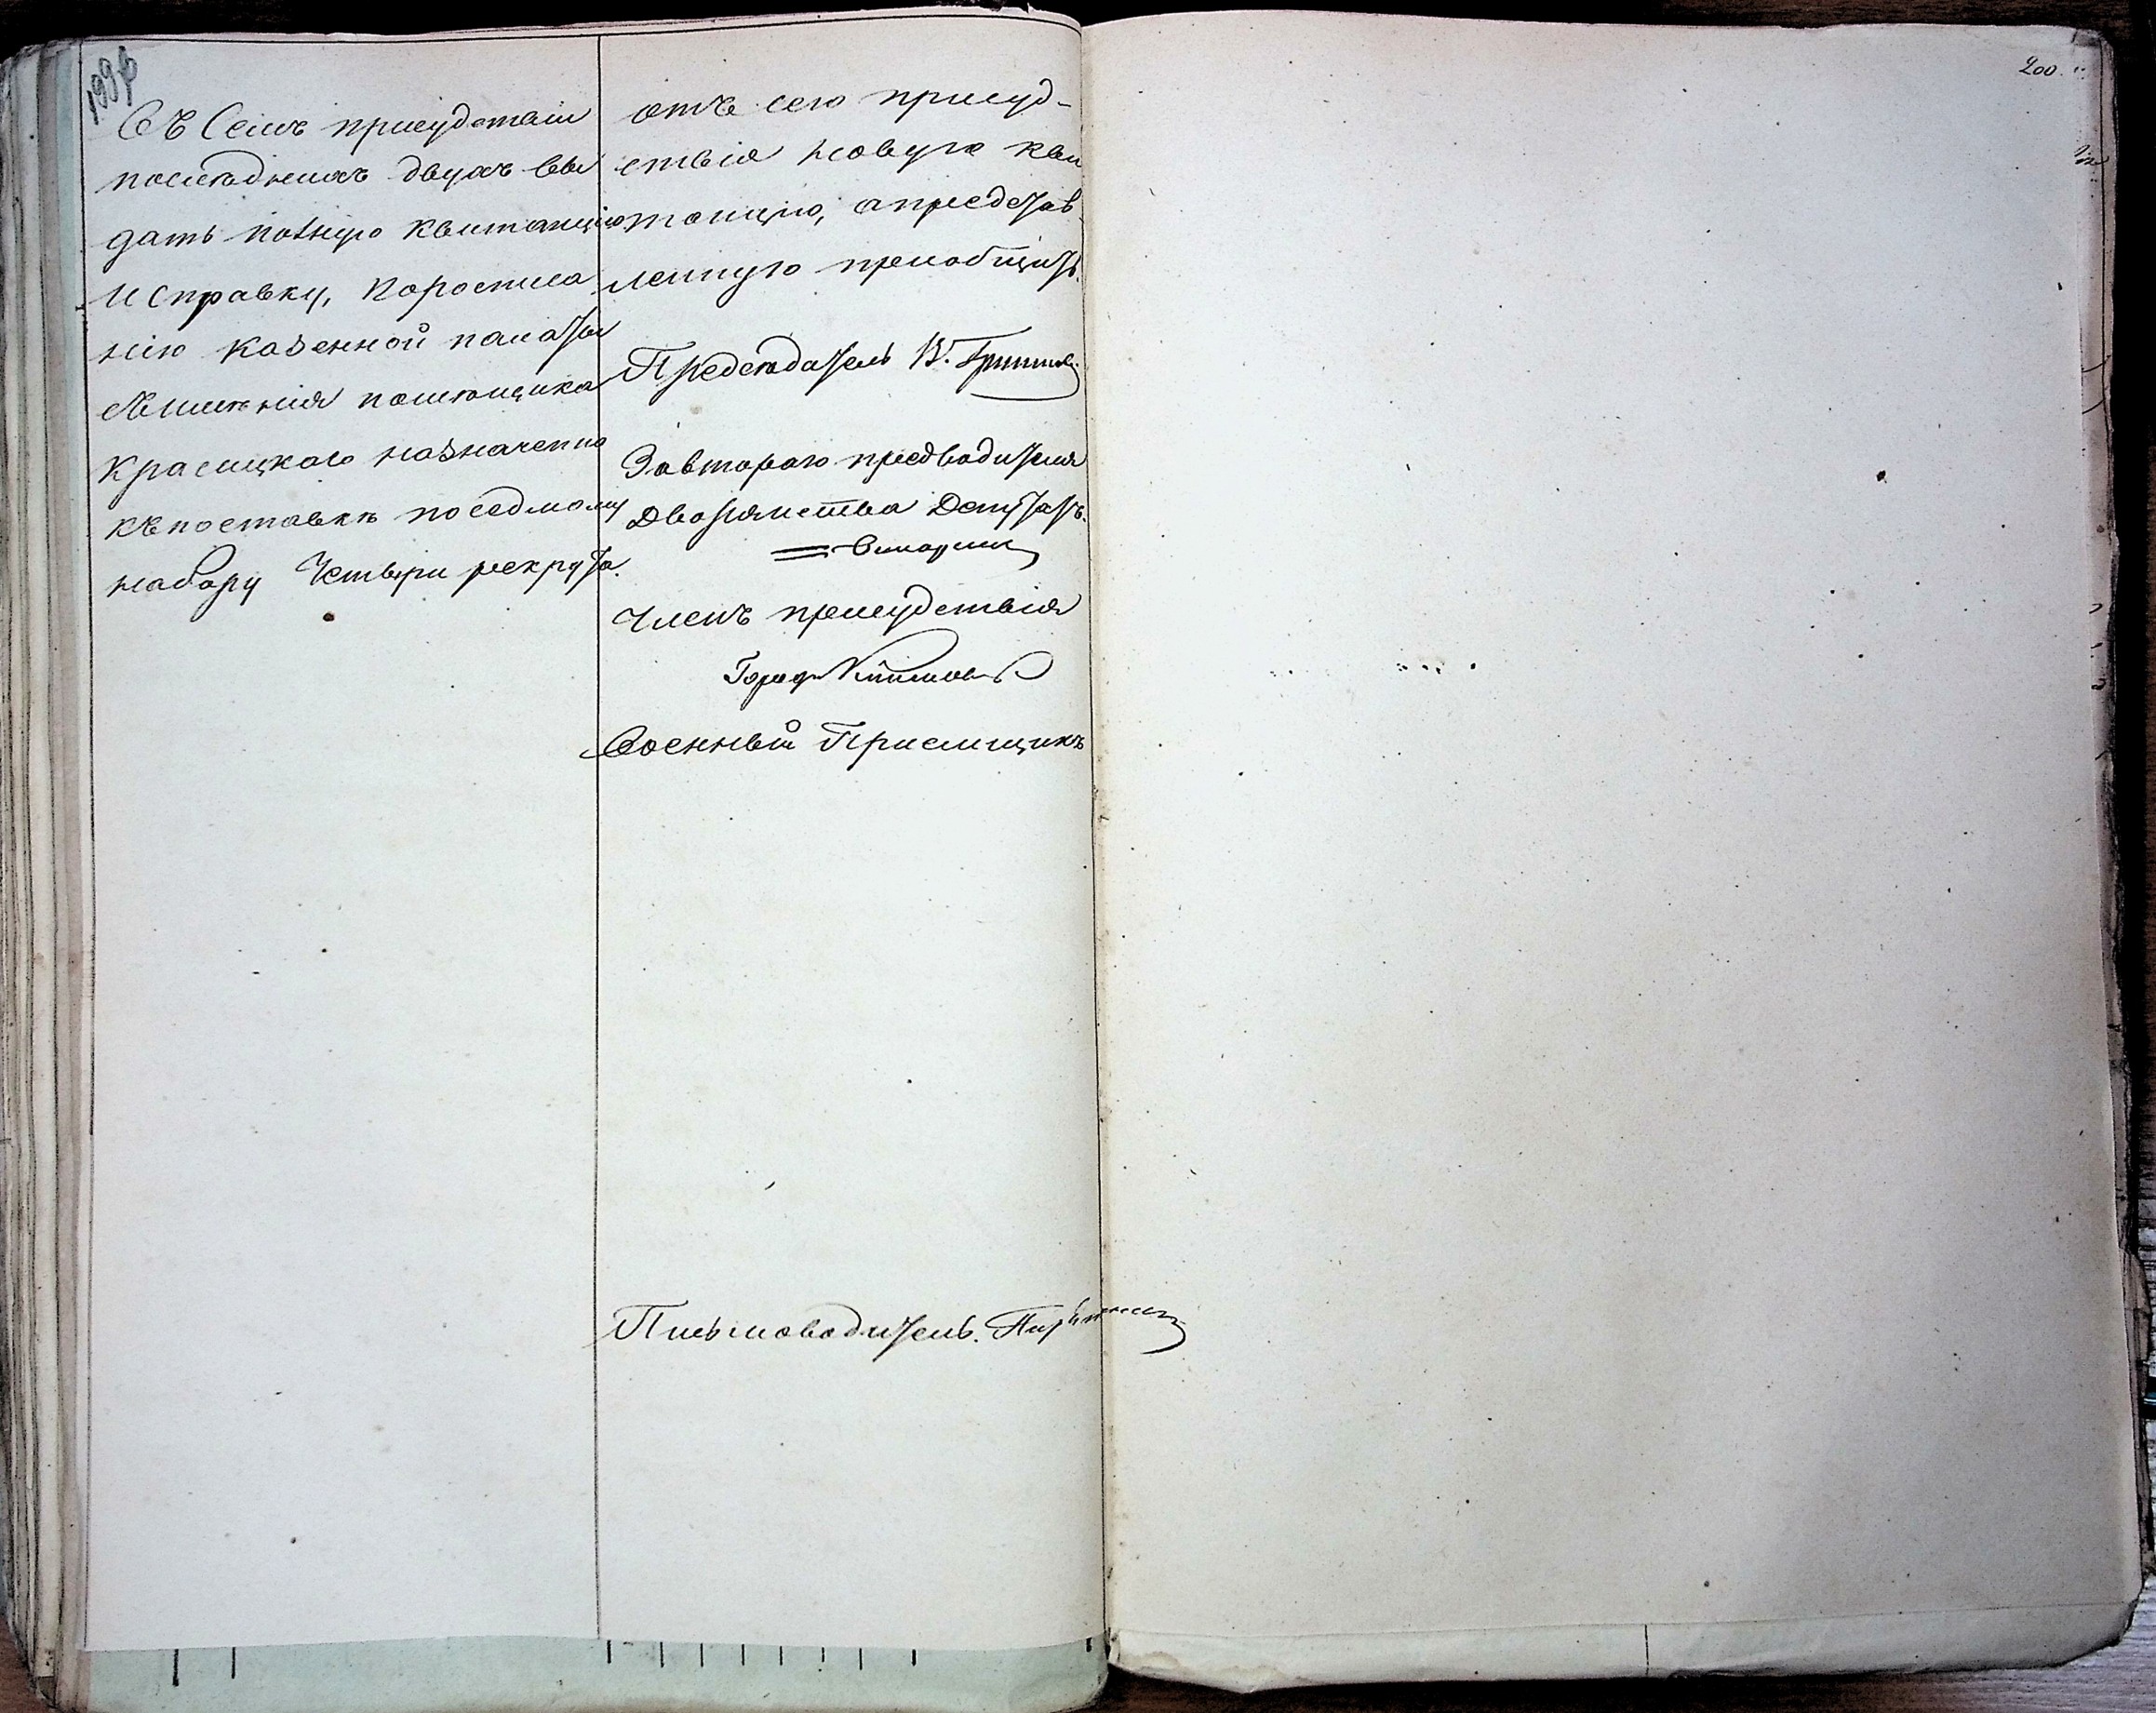 Въ Семъ присудствіи
последнихъ двухъ вы
дать полную квитанцію.
И справку, поросписа
нію казенной палаты
сЪимѣнія помѣщика
Красицкого назначенно
къ поставкѣ поседмому
набору Четыри рекрута.
отъ сего присуд-
ствія новую кви
танцію, апредстав-
ленную приобщить.
Председатель В.
Завтораго предводителя
Дворянства Депутатъ.
Членъ присудствія
Военный Приемщикъ
Письмоводитель.
200.